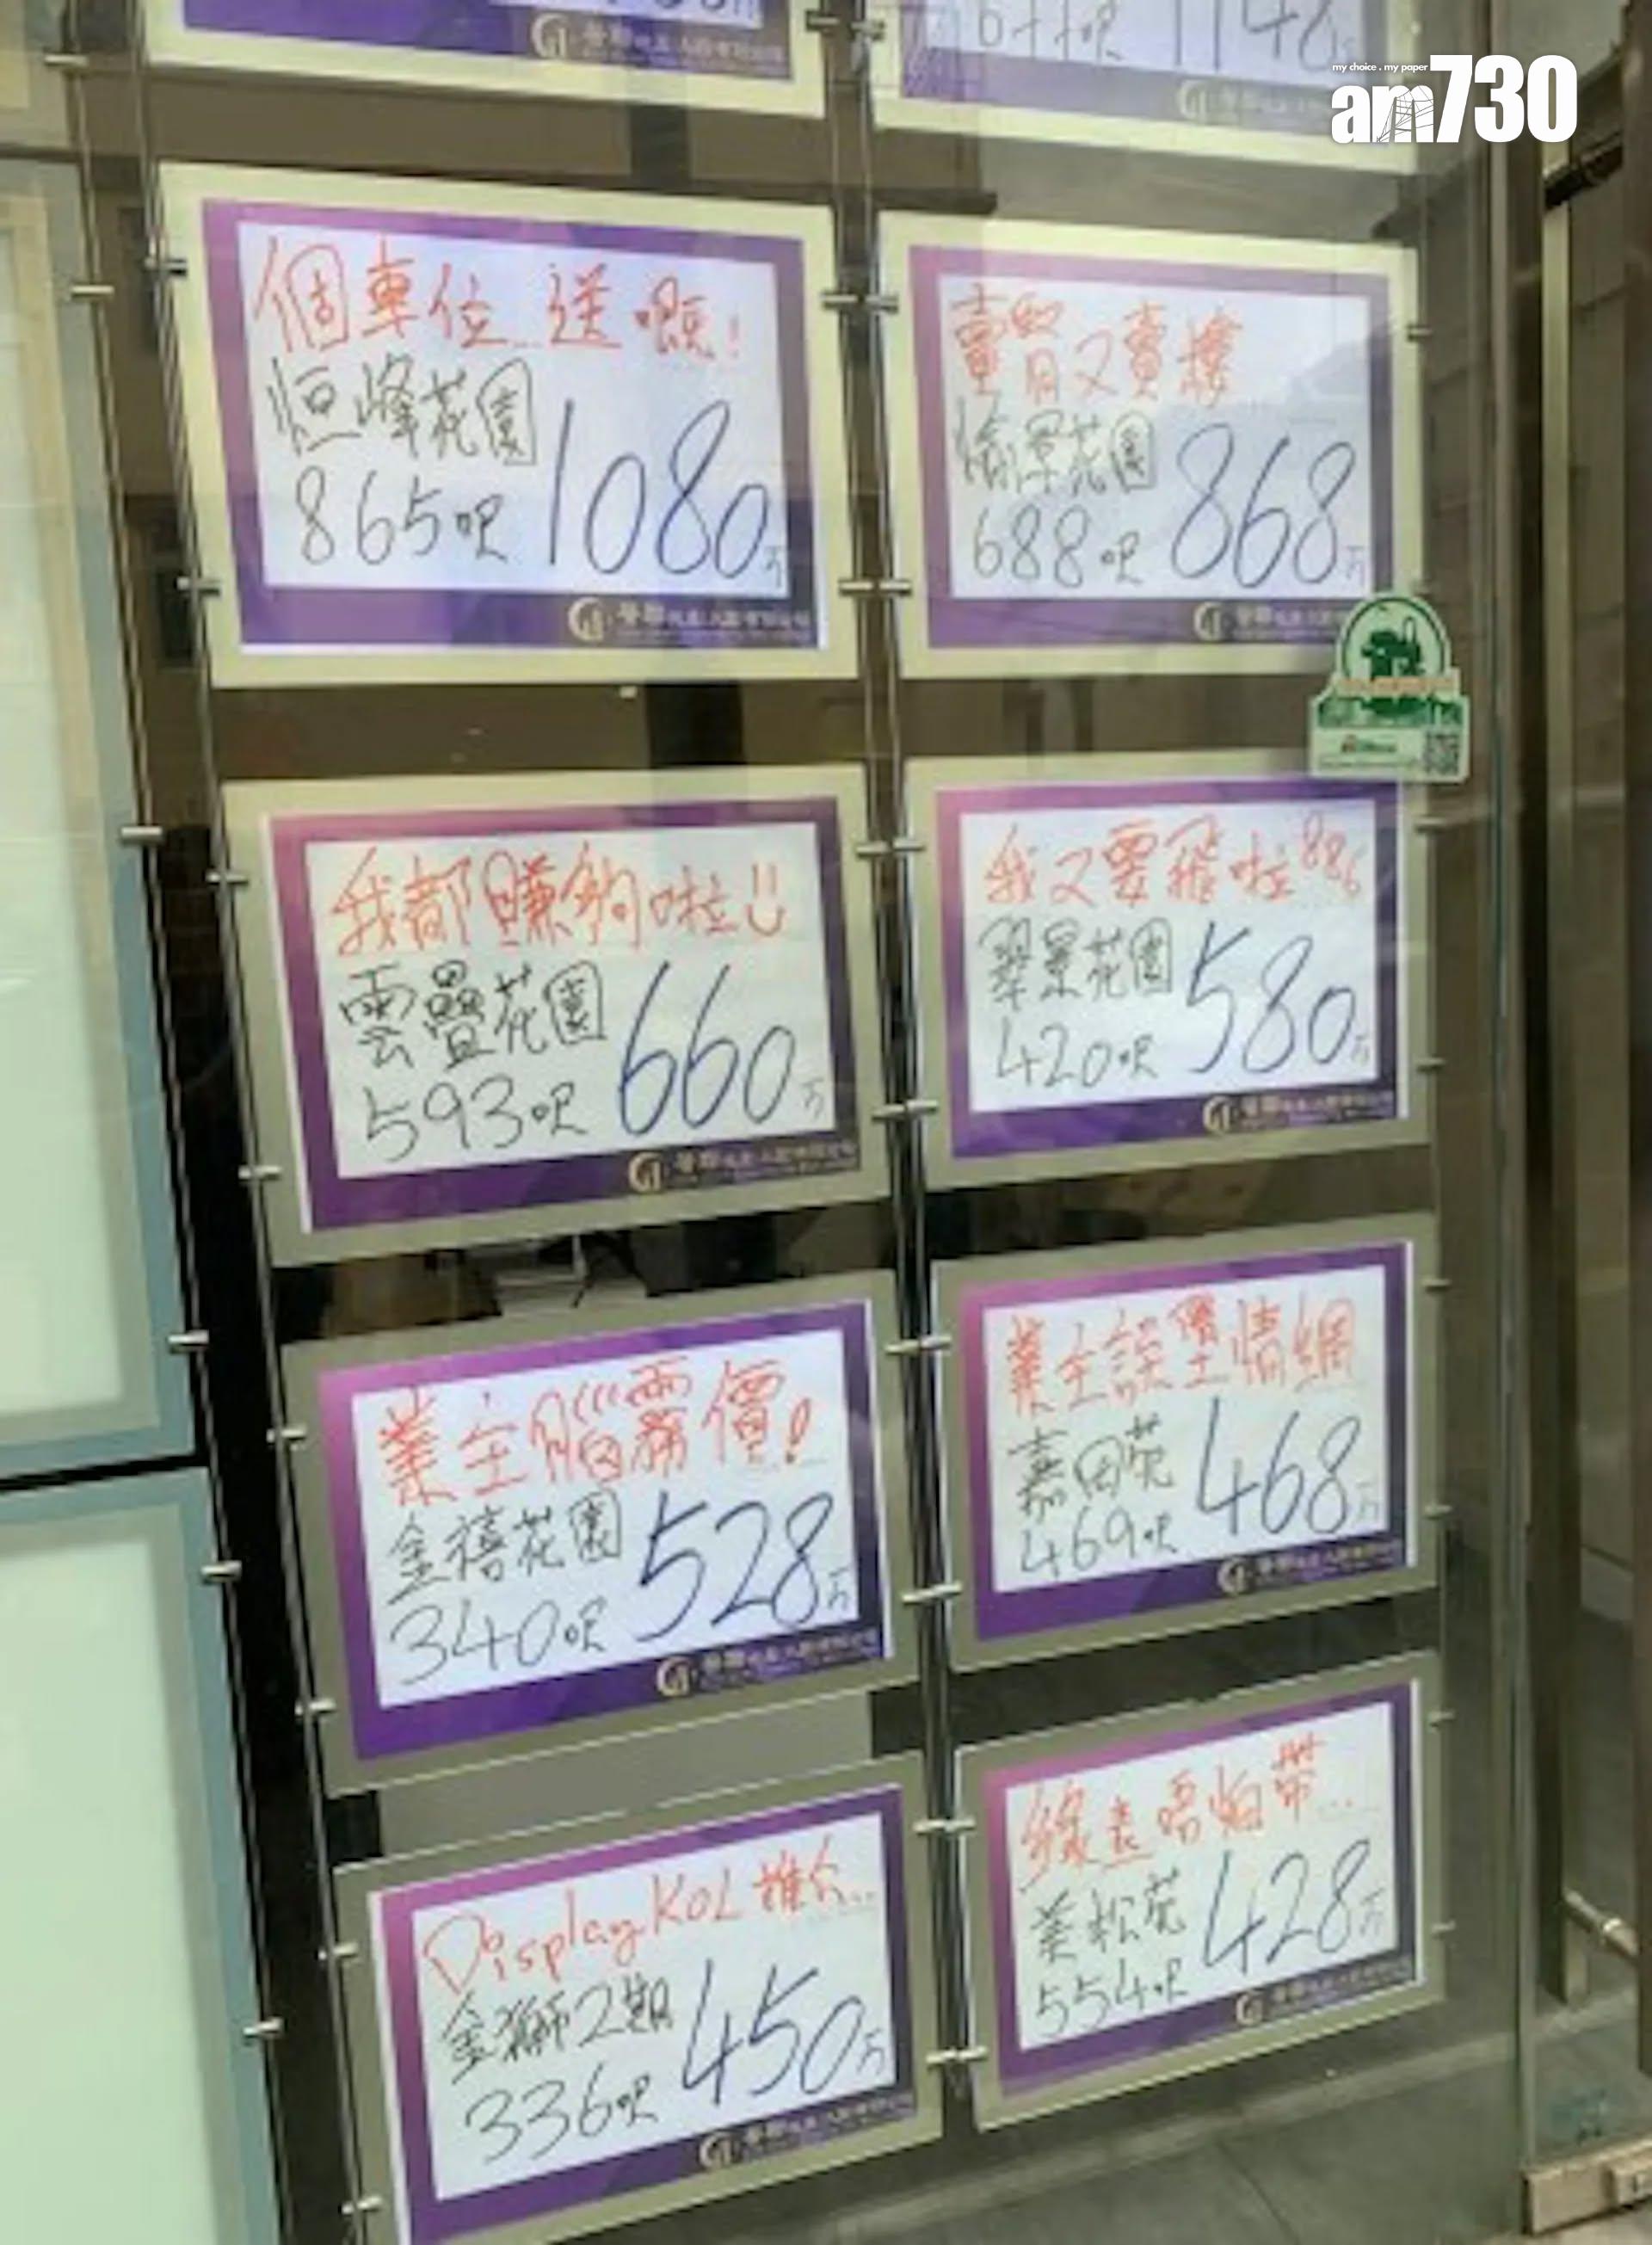 my choice . my paper
am730
個車位...送嘅!
恒峰花園
865呎 1080万
賣腎又賣樓
愉翠花園
688呎 868万
我都賺夠啦
雲疊花園
593呎 660万
我又要飛啦 886
翠景花園
420呎 580万
業主腦霧價!
金禧花園
340呎 528万
業主誤墮情網
嘉田苑
469呎 468万
Display KOL 推介...
金獅2期
336呎 450万
綠表唔怕帶...
美松苑
554呎 428万